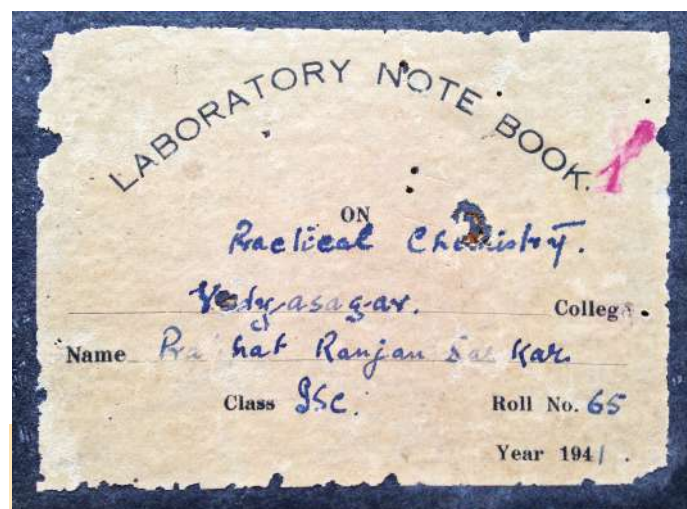 LABORATORY NOTE BOOK.
1
ON
Practical Chemistry.
Vidyasagar. College
Name Prabhat Ranjan Sarkar
Class ISc. Roll No. 65
Year 1941.